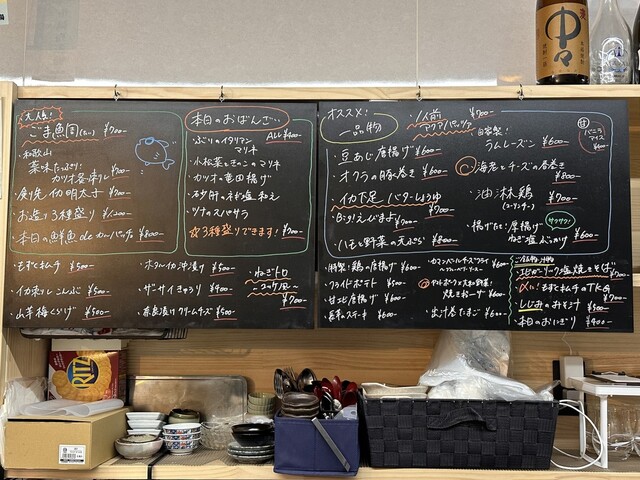 大人気!
ごま魚 ¥700
・和歌山
薬味たっぷり
カツオ ¥700
イカ明太子 ¥700
・お造り3種盛り ¥1200
・本日の鮮魚 de カルパッチョ ¥800
本日のおばんざい
ALL ¥400
・ぶりのイタリアンマリネ
・小松菜ときのこのマリネ
・カツオの竜田揚げ
・砂肝のネギ塩和え
・ツナのスパサラ
☆3種盛りできます! ¥700
・もずとキムチ ¥500
・イカ キムチ こんぶ ¥500
・山芋梅くらげ ¥500
・ホタルイカ沖漬け ¥500
・ザーサイきゅうり ¥400
・奈良漬けクリームチーズ ¥500
・ねぎトロ
¥700
オススメ!
一品物
・豆あじ唐揚げ ¥600
・オクラの豚巻き ¥600
・イカ下足バターしょうゆ ¥700
・Big!えびまよ ¥700
・はもと野菜の天ぷら ¥800
1人前
アクアパッツァ ¥700
自家製!
ラムレーズン ¥600
甘
バニラアイス
¥400
海老とチーズの春巻き ¥800
・油淋鶏 ¥700
(ユーリンチー)
・揚げたて!厚揚げ
ねぎ塩ぶっかけ ¥600
サクサク!
・特製!鶏の唐揚げ ¥600
・フライドポテト ¥500
・甘北唐揚げ ¥600
・長芋のステーキ ¥600
・カマンベールチーズフライ ¥600
焼きおーザ ¥600
・出汁巻たまご ¥600
ポーク塩焼きそば ¥700
〆に!もずとキムチのTKG ¥700
・しじみのみそ汁 ¥500
・本日のおにぎり ¥400
中々
RITZ